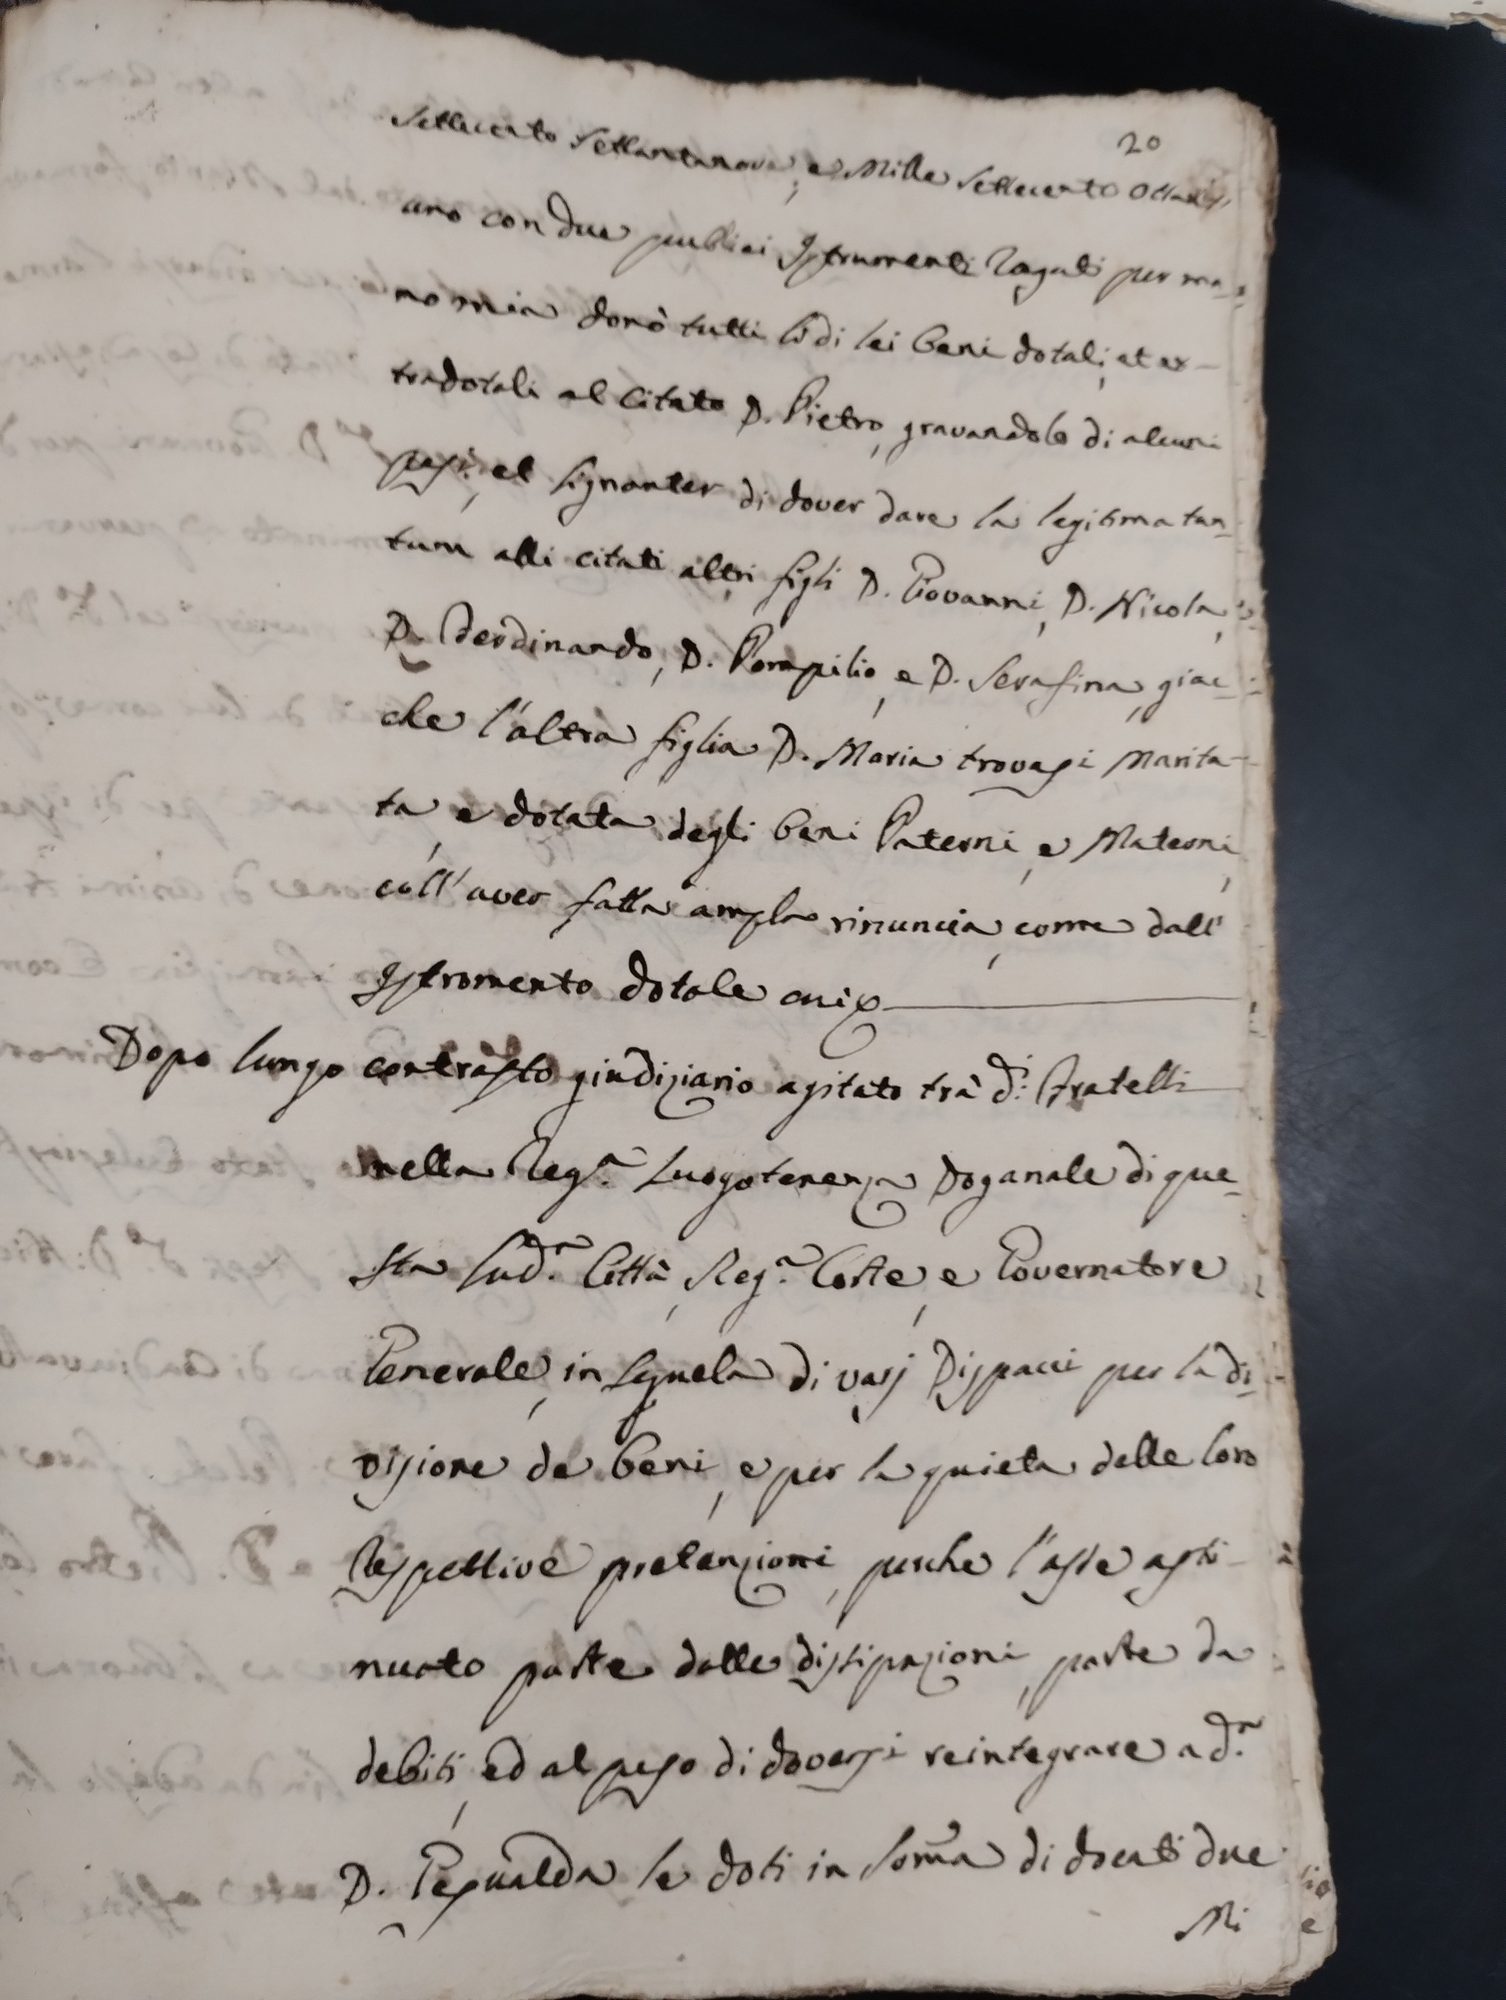 20
Settecento Settantanove, e Mille Settecento Ottant'
uno con due publici Istrumenti rogati per ma=
no mia donò tutti li di lei beni dotali, et ex-
tradotali al citato D. Pietro, gravandolo di alcuni
pesi, et signanter di dover dare la legitima tan=
tum alli citati altri figli D. Giovanni, D. Nicola,
D. Ferdinando, D. Pompilio, e D. Serafina, giac=
che l'altra figlia D. Maria trovasi marita-
ta, e dotata degli beni Paterni, e Materni,
coll'aver fatta ampla rinuncia, come dall'
Istromento dotale
Dopo lungo contrasto giudiziario agitato trà d.i Fratelli
nella Reg.a Luogotenenza Doganale di que=
sta Sud.a Città, Reg.a Corte, e Governatore
Generale, in sequela di varj Dispacci per la di=
visione de beni, e per la quieta delle loro
respettive pretenzioni, perche l'asse aste-
nuato parte dalle dissipazioni, parte da
debiti, ed al peso di doversi reintegrare a d.a
D. Gesualda le doti in somma di docati due
Mi